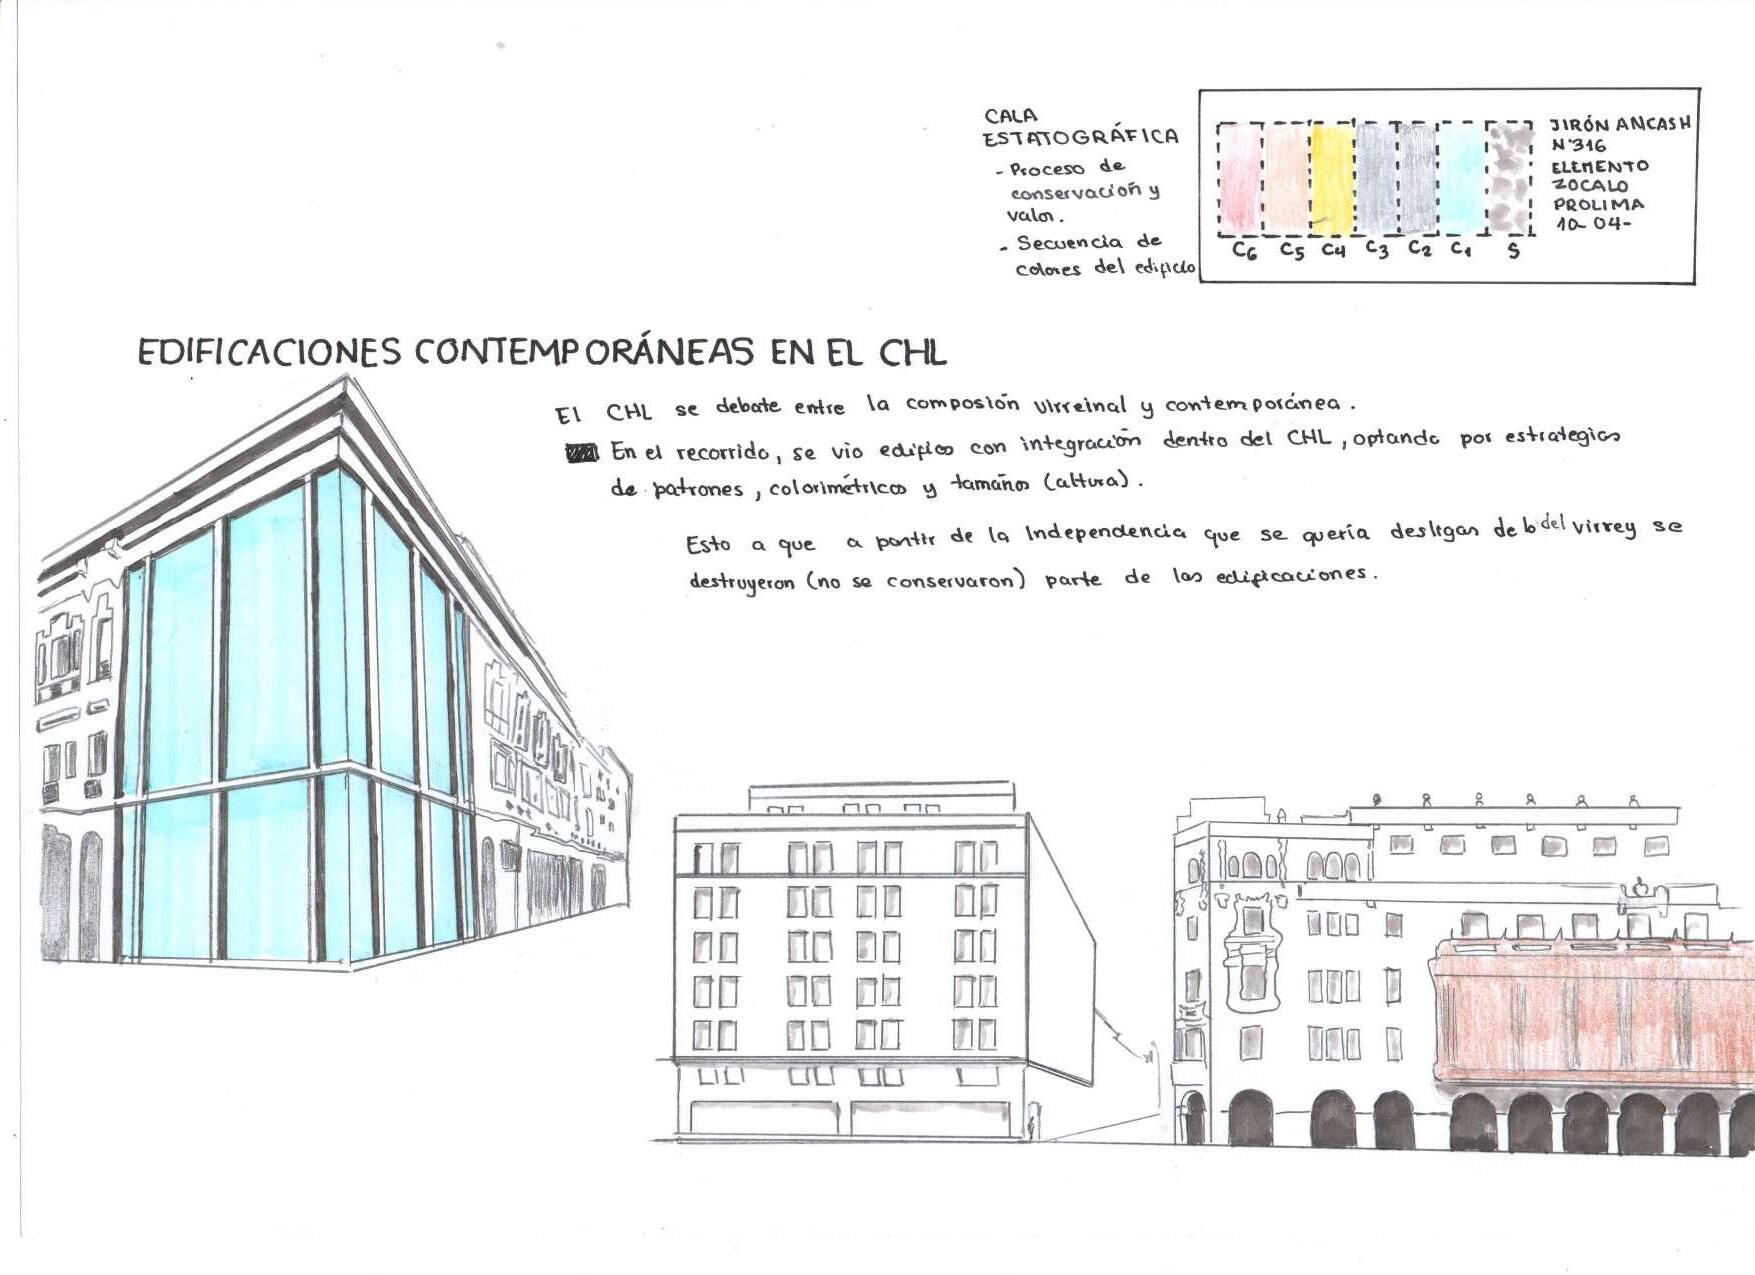 CALA
ESTATOGRÁFICA
- Proceso de
conservación y
valor.
- Secuencia de
colores del edificio
JIRÓN ANCASH
N°316
ELEMENTO
ZOCALO
PROLIMA
10-04-
C6 C5 C4 C3 C2 C1 S
EDIFICACIONES CONTEMPORÁNEAS EN EL CHL
El CHL se debate entre la composión virreinal y contemporánea.
En el recorrido, se vio edificos con integración dentro del CHL, optando por estrategias
de patrones, colorimétricos y tamaños (altura).
Esto a que a partir de la Independencia que se quería desligar de lo del virrey se
destruyeron (no se conservaron) parte de las edificaciones.